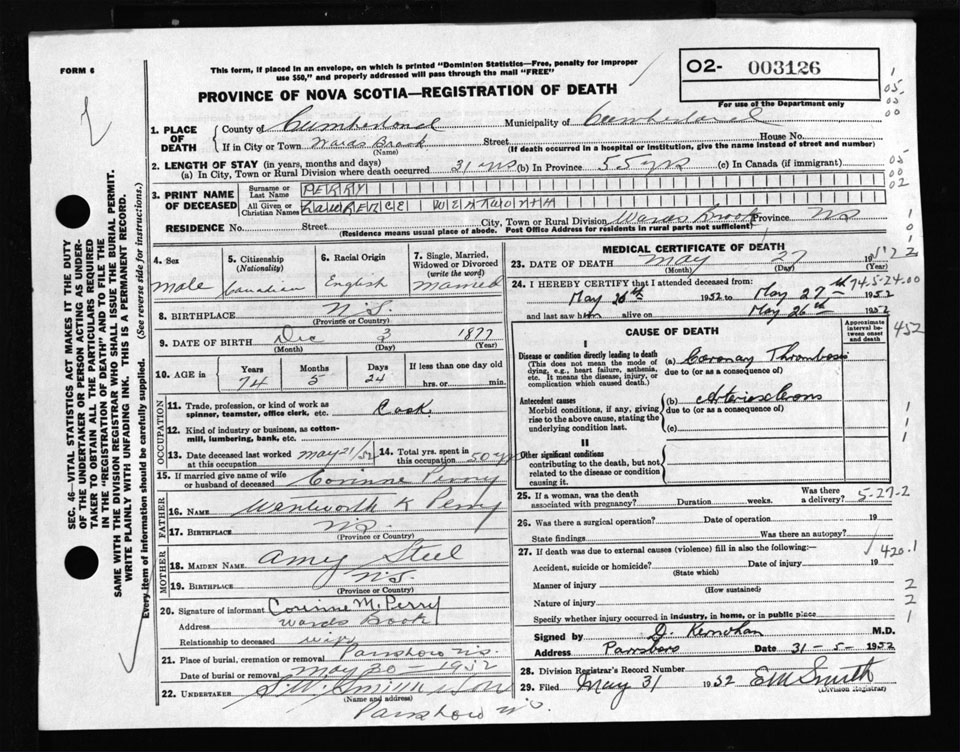 FORM 6
This form, if placed in an envelope, on which is printed "Dominion Statistics—Free, penalty for improper
use $50," and properly addressed will pass through the mail "FREE"
O2- 003126
For use of the Department only
PROVINCE OF NOVA SCOTIA—REGISTRATION OF DEATH
SEC. 46—VITAL STATISTICS ACT MAKES IT THE DUTY
OF THE UNDERTAKER OR PERSON ACTING AS UNDER-
TAKER TO OBTAIN ALL THE PARTICULARS REQUIRED
IN THE "REGISTRATION OF DEATH" AND TO FILE IT
SAME WITH THE DIVISION REGISTRAR WHO SHALL ISSUE THE BURIAL PERMIT.
WRITE PLAINLY WITH UNFADING INK. THIS IS A PERMANENT RECORD.
Every item of information should be carefully supplied. (See reverse side for instructions.)
1. PLACE OF DEATH
County of Cumberland Municipality of Cumberland
If in City or Town Wards Brook Street House No.
(Name) (If death occurred in a hospital or institution, give the name instead of street and number)
2. LENGTH OF STAY (in years, months and days)
(a) In City, Town or Rural Division where death occurred 31 yrs (b) In Province 55 yrs (c) In Canada (if immigrant)
3. PRINT NAME OF DECEASED
Surname or Last Name PERRY
All Given or Christian Names LAWRENCE WENTWORTH
RESIDENCE No. Street City, Town or Rural Division Wards Brook Province NS
(Residence means usual place of abode. Post Office Address for residents in rural parts not sufficient)
4. Sex Male
5. Citizenship (Nationality) Canadian
6. Racial Origin English
7. Single, Married, Widowed or Divorced (write the word) Married
8. BIRTHPLACE N.S.
(Province or Country)
9. DATE OF BIRTH Dec 3 1877
(Month) (Day) (Year)
10. AGE in Years 74 Months 5 Days 24 If less than one day old hrs. or min.
OCCUPATION
11. Trade, profession, or kind of work as
spinner, teamster, office clerk, etc. Cook
12. Kind of industry or business, as cotton-
mill, lumbering, bank, etc.
13. Date deceased last worked at this occupation May 21/52
14. Total yrs. spent in this occupation 50 yrs
15. If married give name of wife or husband of deceased Corinne Perry
FATHER
16. NAME Wentworth K Perry
17. BIRTHPLACE N.S.
(Province or Country)
MOTHER
18. MAIDEN NAME Amy Steel
19. BIRTHPLACE N.S.
(Province or Country)
20. Signature of informant Corinne M. Perry
Address Wards Brook
Relationship to deceased wife
21. Place of burial, cremation or removal N.S.
Date of burial or removal May 30 - 1952
22. UNDERTAKER
(Name and address)
N.S.
MEDICAL CERTIFICATE OF DEATH
23. DATE OF DEATH May 27
(Month) (Day) (Year)
24. I HEREBY CERTIFY that I attended deceased from:
May 26th 1952 to May 27th 1952
and last saw him alive on May 26th 1952
CAUSE OF DEATH
Approximate interval between onset and death
I
Disease or condition directly leading to death
(This does not mean the mode of
dying, e.g., heart failure, asthenia,
etc. It means the disease, injury, or
complication which caused death.)
(a) Coronary Thrombosis
due to (or as a consequence of)
Antecedent causes
Morbid conditions, if any, giving
rise to the above cause, stating the
underlying condition last.
(b) Arteriosclerosis
due to (or as a consequence of)
(c)
II
Other significant conditions
contributing to the death, but not
related to the disease or condition
causing it.
25. If a woman, was the death associated with pregnancy? Duration weeks. Was there a delivery?
26. Was there a surgical operation? Date of operation 19
State findings Was there an autopsy?
27. If death was due to external causes (violence) fill in also the following:—
Accident, suicide or homicide? Date of injury 19
(State which)
Manner of injury
(How sustained)
Nature of injury
Specify whether injury occurred in industry, in home, or in public place
Signed by J. Kernohan M.D.
Address Parrsboro Date 31-5-1952
28. Division Registrar's Record Number
29. Filed May 31 1952 EM Smith
(Division Registrar)
1
05-
00
00
05
00
02
74.5-24.00
452
1
1
1
5-27-2
420.1
2
2
1